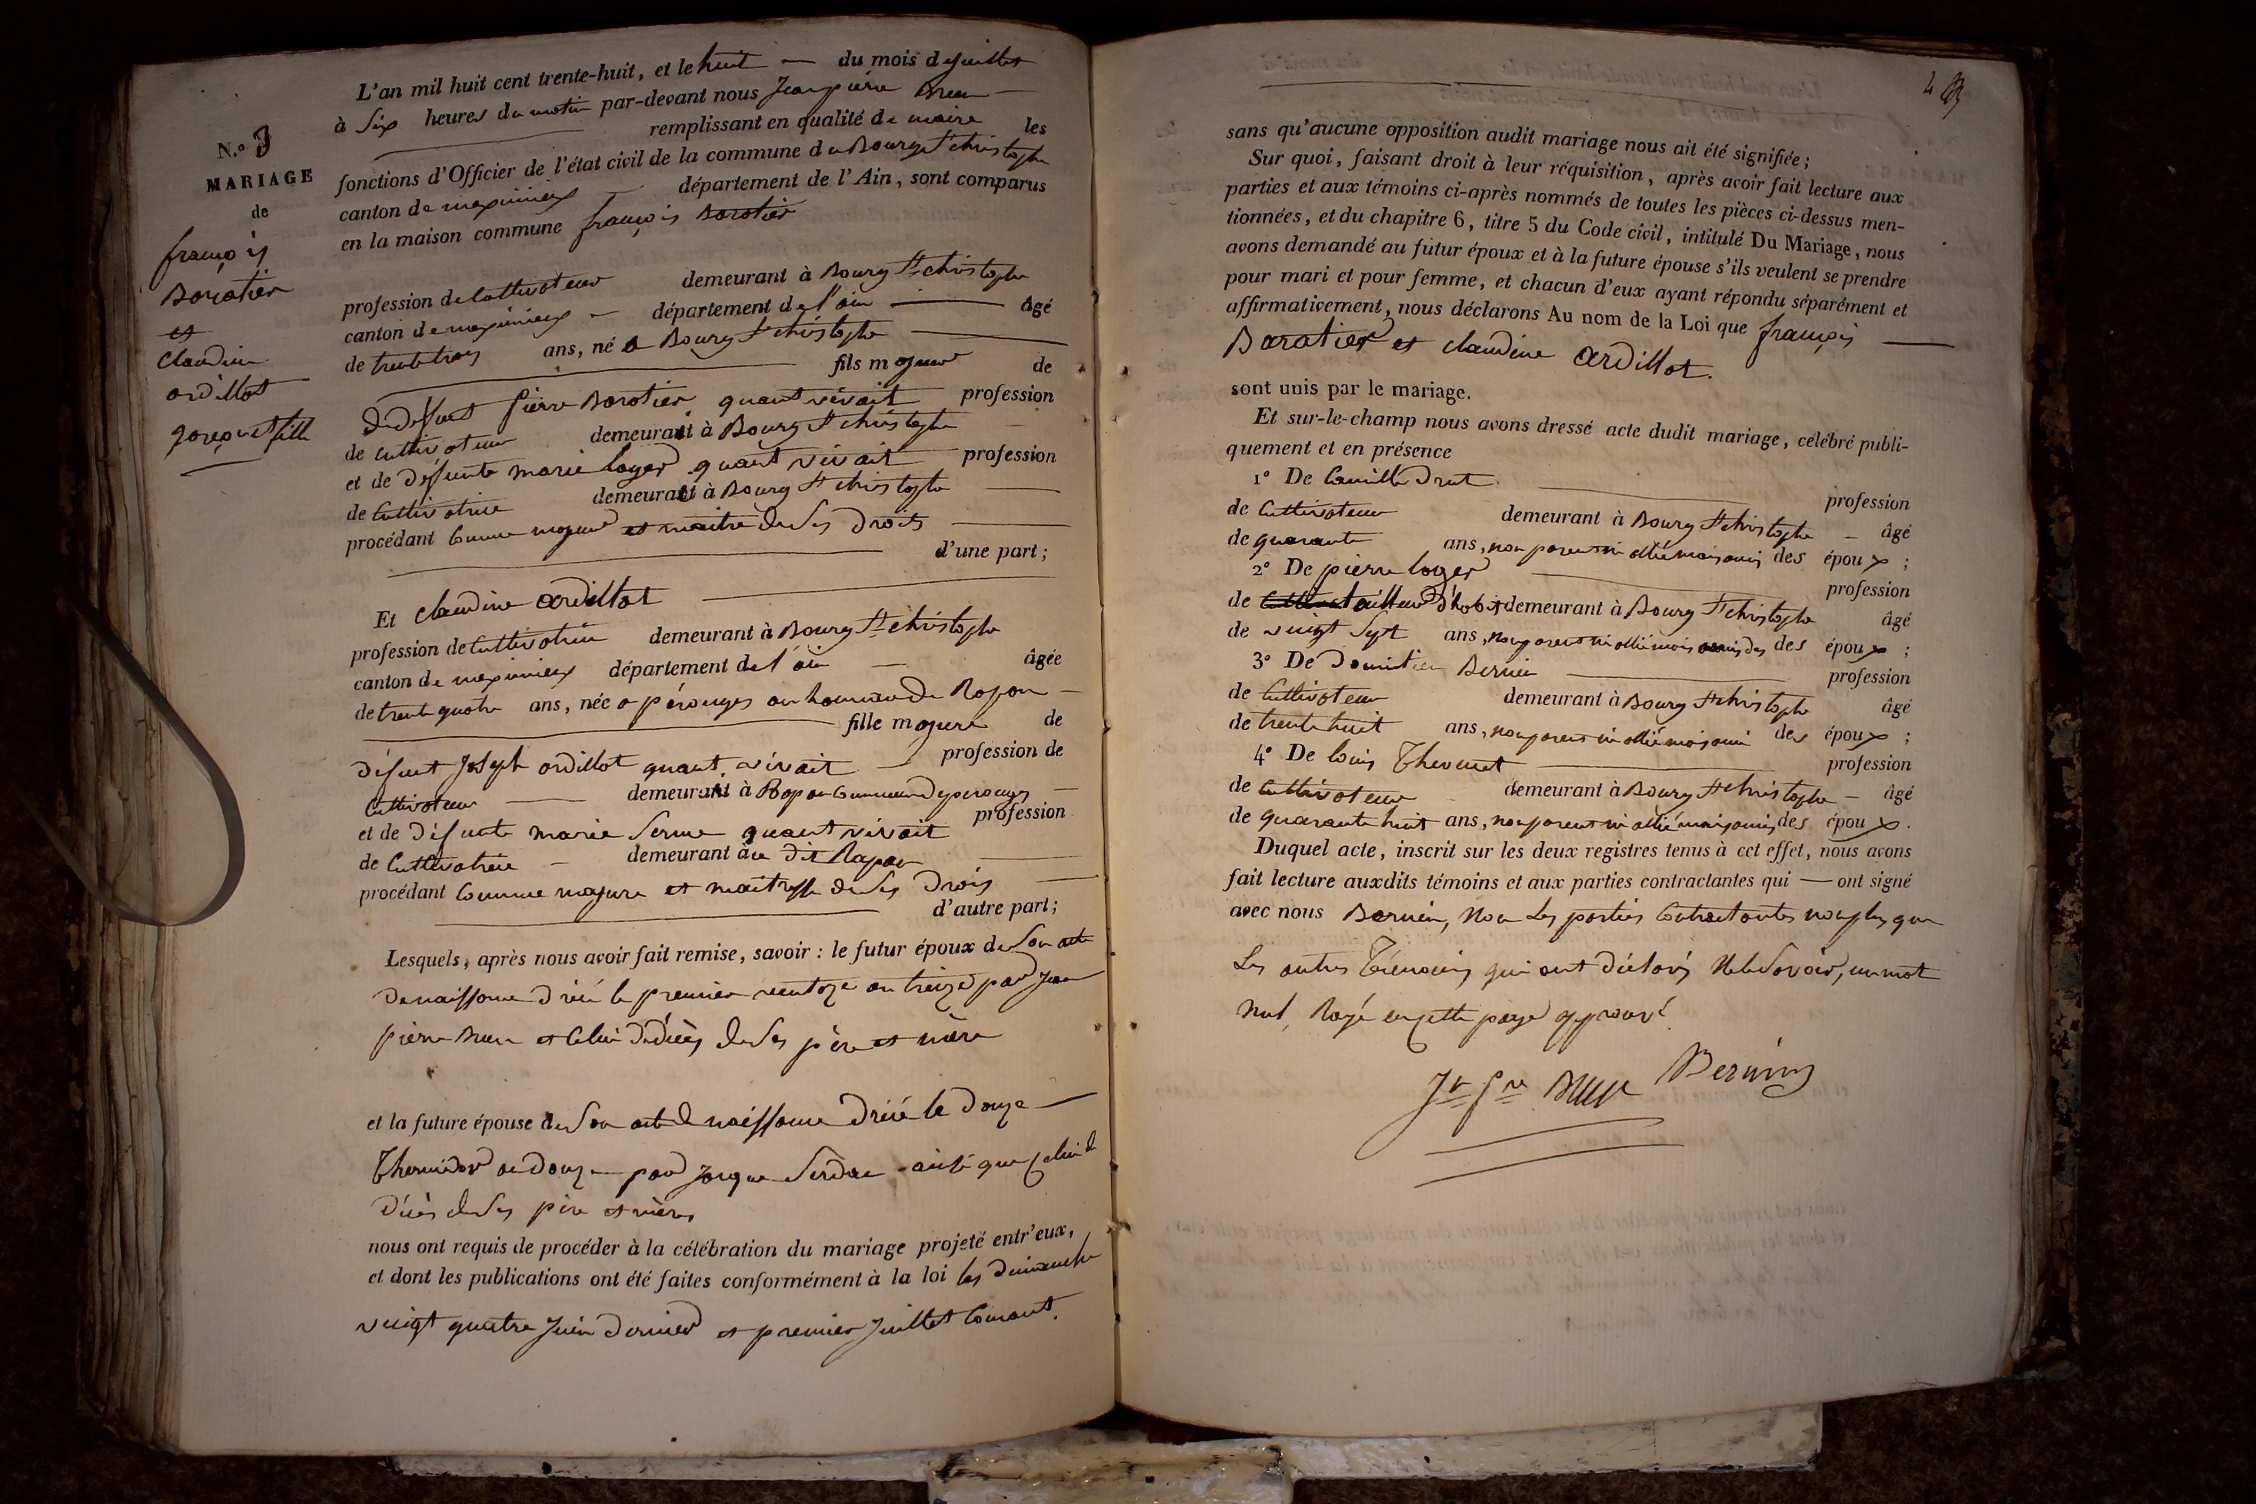 L'an mil huit cent trente-huit, et le huit — du mois de juillet
à six heures du matin par-devant nous Jean pierre
remplissant en qualité de maire les
fonctions d'Officier de l'état civil de la commune de Bourg St christophe
canton de meximieux département de l'Ain, sont comparus
en la maison commune françois Baratier
N.º 3
MARIAGE
de
françois
Baratier
et
claudine
ardillot
garçon et fille
profession de Cultivateur demeurant à Bourg St christophe
canton de meximieux — département de l'ain — âgé
de trente trois ans, né a Bourg St christophe
fils majeur de
de defunt pierre Baratier quant vivait profession
de cultivateur demeurant à Bourg St christophe
et de défunte marie loyer quant vivait profession
de Cultivatrice demeurant à Bourg St christophe
procédant comme majeur et maitre de ses droits
d'une part;
Et claudine ardillot
profession de Cultivatrice demeurant à Bourg St christophe
canton de meximieux département de l'ain — âgée
de trente quatre ans, née a pérouges au hameau de Rapan —
fille majeure de
défunt Joseph ardillot quant vivait profession de
Cultivateur demeurant à Rapan Commune de perouges
et de défunte marie quant vivait profession
de Cultivatrice — demeurant au dit Rapan
procédant Comme majeure et maitresse de ses Droits
d'autre part;
Lesquels, après nous avoir fait remise, savoir: le futur époux de son acte
de naissance dréssé le premier ventose an treize par Jean
pierre et celui de décès de ses père et mère
et la future épouse de son acte de naissance dréssé le douze
Thermidor an douze — par Jacque ainsi que celui de
décès de ses père et mères
nous ont requis de procéder à la célébration du mariage projeté entr'eux,
et dont les publications ont été faites conformément à la loi les dimanche
vingt quatre juin dernier et premier juillet courant.
sans qu'aucune opposition audit mariage nous ait été signifiée;
Sur quoi, faisant droit à leur réquisition, après avoir fait lecture aux
parties et aux témoins ci-après nommés de toutes les pièces ci-dessus men-
tionnées, et du chapitre 6, titre 5 du Code civil, intitulé Du Mariage, nous
avons demandé au futur époux et à la future épouse s'ils veulent se prendre
pour mari et pour femme, et chacun d'eux ayant répondu séparément et
affirmativement, nous déclarons Au nom de la Loi que françois —
Baratier et claudine ardillot.
sont unis par le mariage.
Et sur-le-champ nous avons dressé acte dudit mariage, célébré publi-
quement et en présence
1º De Camille Drut profession
de Cultivateur demeurant à Bourg St christophe — âgé
de quarante ans, non parent ni allié mais ami des époux;
2º De pierre loyer profession
de tailleur d'habit demeurant à Bourg St christophe âgé
de vingt sept ans, non parent ni allié mais amis des des époux;
3º De Domitien Bernin profession
de Cultivateur demeurant à Bourg St christophe âgé
de trente huit ans, non parent ni allié mais ami des époux;
4º De louis Thevenet profession
de Cultivateur demeurant à Bourg St christophe — âgé
de quarante huit ans, non parent ni allié mais ami des époux.
Duquel acte, inscrit sur les deux registres tenus à cet effet, nous avons
fait lecture auxdits témoins et aux parties contractantes qui — ont signé
avec nous Bernin, Non Les parties Contractantes non plus que
Les autres Témoins qui ont déclarés Ne le savoir, un mot
nul Rayé en cette page approuvé.
Jn Pre Bernin